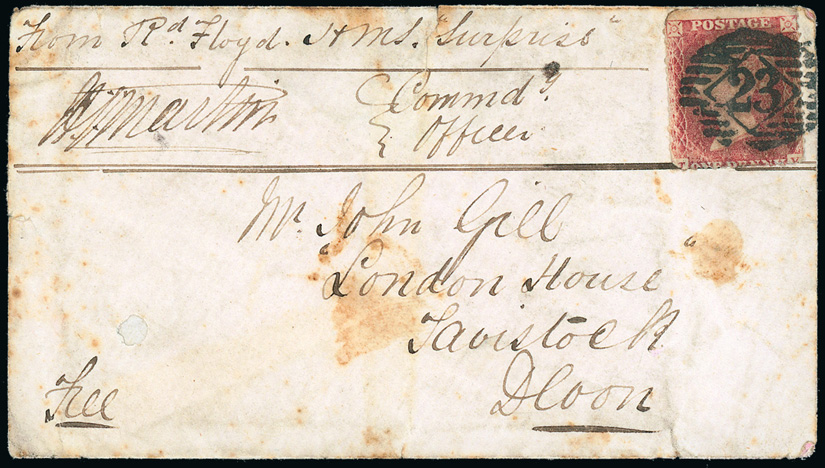 From Rd. Floyd. HMS. "Surprise"
POSTAGE
23
Martin
Commdg.
Officer
ONE PENNY
Mr. John Gill
"London House"
Tavistock
Devon
Free